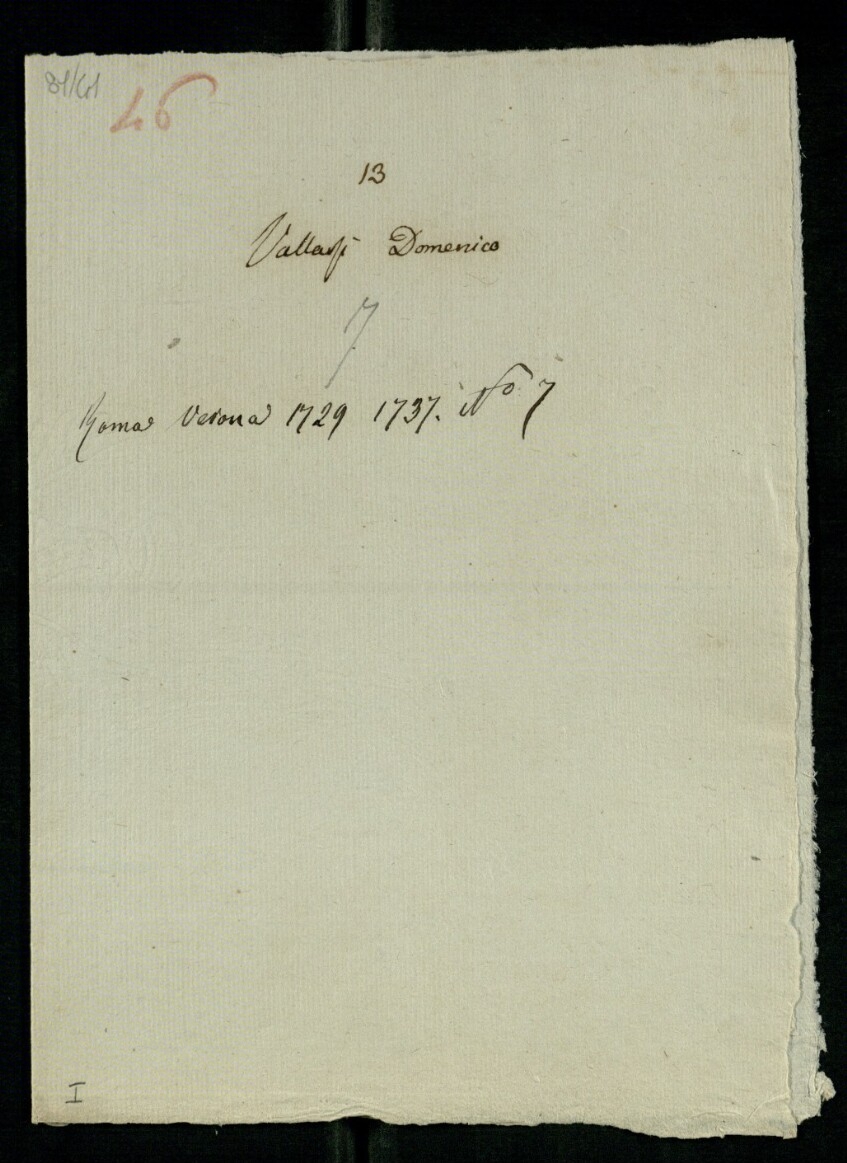 46
13
Vallarsi Domenico
7
Roma Verona 1729 1737. No 7
I